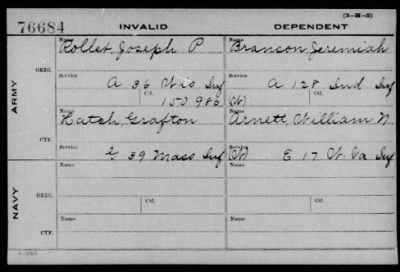 (3-H-3)
76684 INVALID DEPENDENT
Name Name
Rollet, Joseph P. Branson, Jeremiah
ORIG. Service Service
A 36 Wis Inf A 128 Ind Inf
Ctf. Ctf.
150 986 (W)
ARMY
Name Name
Hatch, Grafton Arnett, William N.
CTF. Service Service
G 39 Mass Inf (W) E 17 W. Va Inf
Name Name
ORIG. Service Service
Ctf. Ctf.
NAVY
Name Name
CTF. Service Service